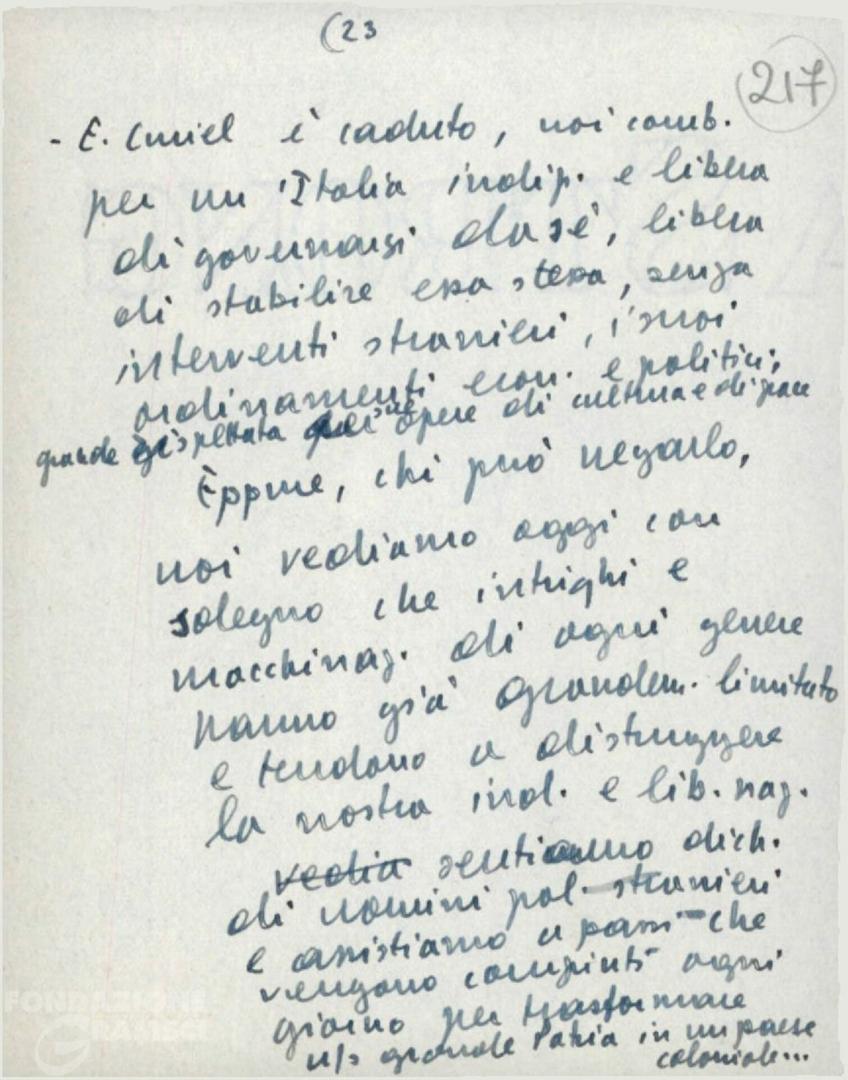 (23
217
- E. Curiel è caduto, noi comb.
per un'Italia indip. e libera
di governarsi da sé, libera
di stabilire essa stessa, senza
interventi stranieri, i suoi
ordinamenti econ. e politici,
grande rispettata sue opere di cultura e di pace
Eppure, chi può negarlo,
noi vediamo oggi con
sdegno che intrighi e
macchinaz. di ogni genere
hanno già grandem. limitato
e tendono a distruggere
la nostra ind. e lib. naz.
vedia sentiamo dich.
di uomini pol. stranieri
e assistiamo a passi che
vengono compiuti ogni
giorno per trasformare
n/s grande Patria in un paese
coloniale...
FONDAZIONE
GRAMSCI